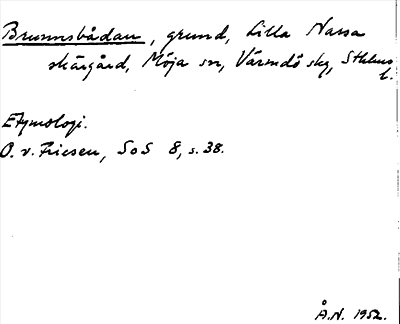 Brunnsbådan, grund, Lilla Nassa
skärgård, Möja sn, Värmdö skg, Sthlms
l.
Etymologi.
O. v. Friesen, SoS 8, s. 38.
Å.N. 1952.